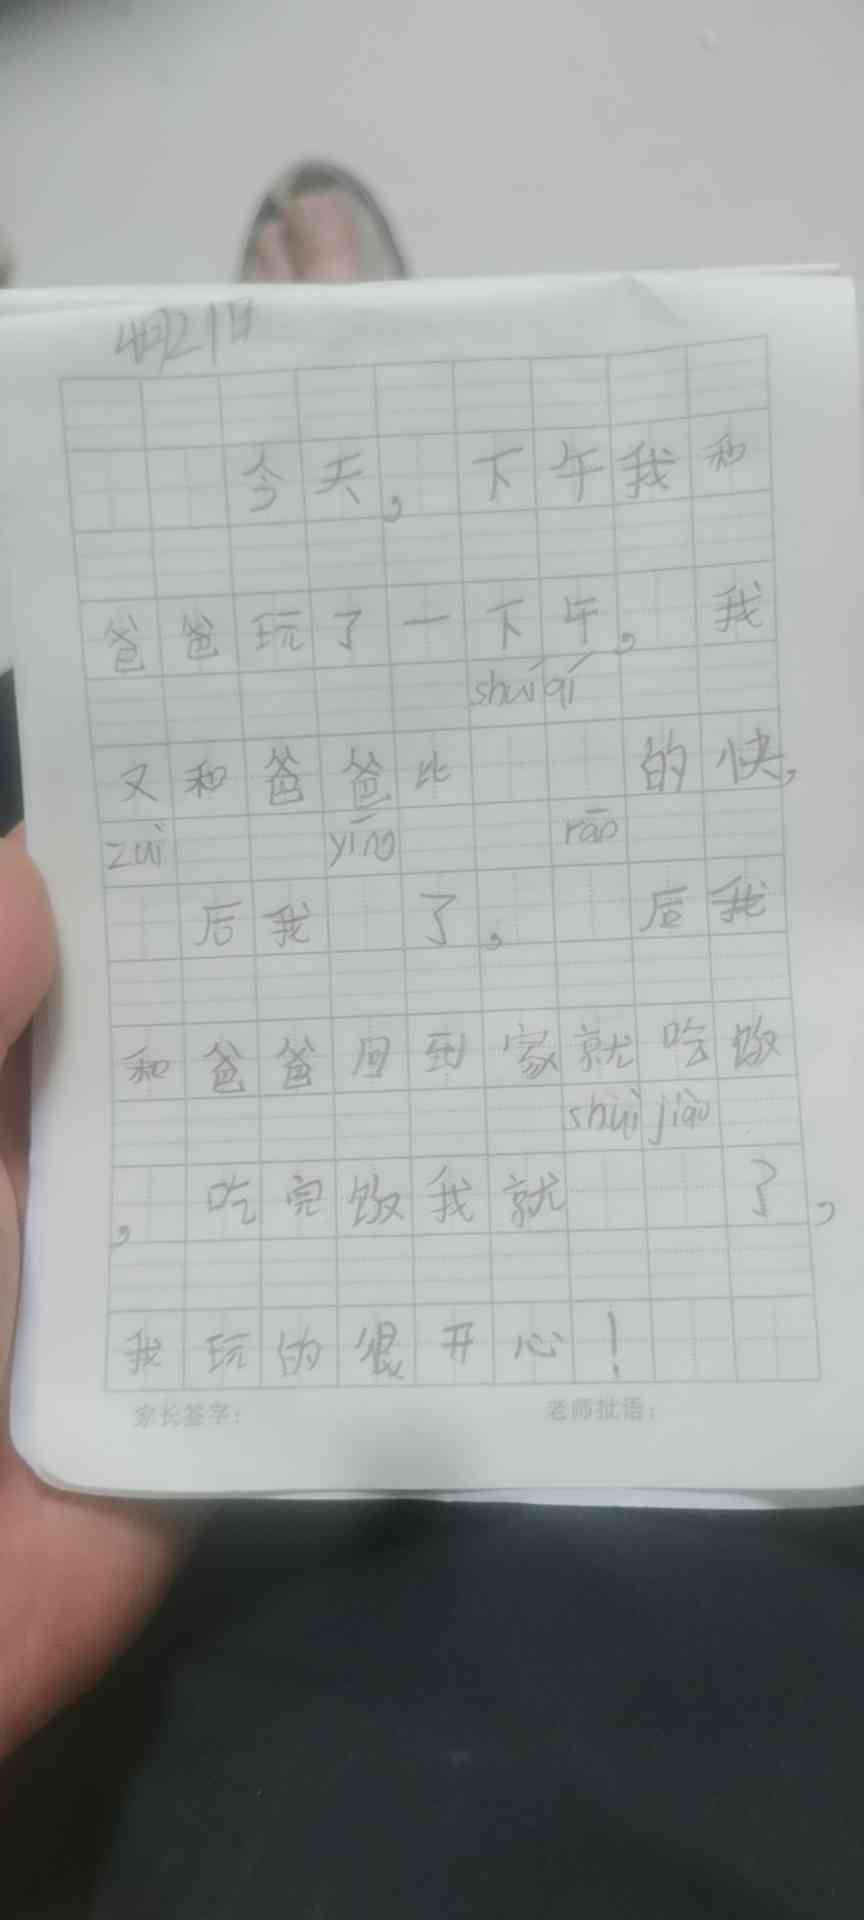 4月21日
今天，下午我和
爸爸玩了一下午，我
shuí qí
又和爸爸比 的快，
zuì yīng rāo
后我 了， 后我
和爸爸回到家就吃饭
shuì jiào
，吃完饭我就 了，
我玩的很开心！
家长签字： 老师批语：